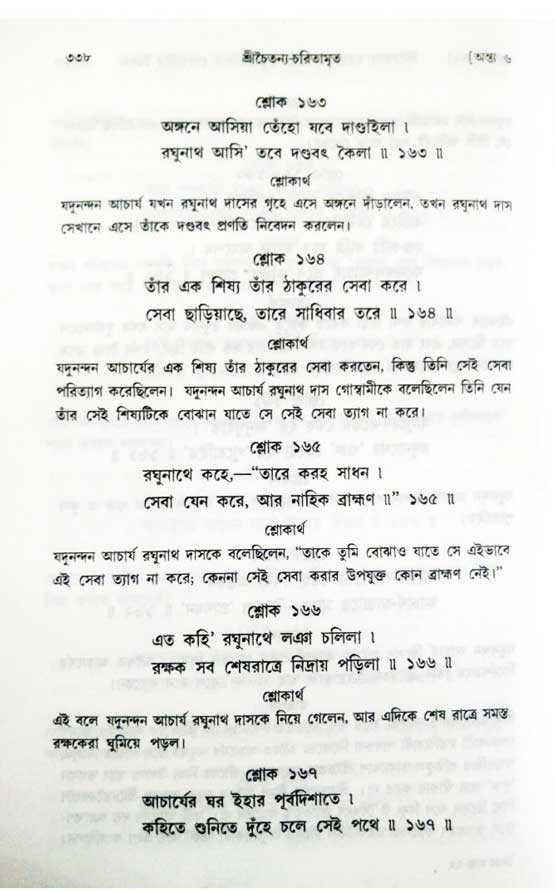 ৩৩৮ শ্রীচৈতন্য-চরিতামৃত [অন্ত্য ৬
শ্লোক ১৬৩
অঙ্গনে আসিয়া তেঁহো যবে দাণ্ডাইলা ।
রঘুনাথ আসি' তবে দণ্ডবৎ কৈলা ॥ ১৬৩ ॥
শ্লোকার্থ
যদুনন্দন আচার্য যখন রঘুনাথ দাসের গৃহে এসে অঙ্গনে দাঁড়ালেন, তখন রঘুনাথ দাস
সেখানে এসে তাঁকে দণ্ডবৎ প্রণতি নিবেদন করলেন।
শ্লোক ১৬৪
তাঁর এক শিষ্য তাঁর ঠাকুরের সেবা করে ।
সেবা ছাড়িয়াছে, তারে সাধিবার তরে ॥ ১৬৪ ॥
শ্লোকার্থ
যদুনন্দন আচার্যের এক শিষ্য তাঁর ঠাকুরের সেবা করতেন, কিন্তু তিনি সেই সেবা
পরিত্যাগ করেছিলেন। যদুনন্দন আচার্য রঘুনাথ দাস গোস্বামীকে বলেছিলেন তিনি যেন
তাঁর সেই শিষ্যটিকে বোঝান যাতে সে সেই সেবা ত্যাগ না করে।
শ্লোক ১৬৫
রঘুনাথে কহে,—“তারে করহ সাধন ।
সেবা যেন করে, আর নাহিক ব্রাহ্মণ ॥” ১৬৫ ॥
শ্লোকার্থ
যদুনন্দন আচার্য রঘুনাথ দাসকে বলেছিলেন, “তাকে তুমি বোঝাও যাতে সে এইভাবে
এই সেবা ত্যাগ না করে; কেননা সেই সেবা করার উপযুক্ত কোন ব্রাহ্মণ নেই।”
শ্লোক ১৬৬
এত কহি' রঘুনাথে লঞা চলিলা ।
রক্ষক সব শেষরাত্রে নিদ্রায় পড়িলা ॥ ১৬৬ ॥
শ্লোকার্থ
এই বলে যদুনন্দন আচার্য রঘুনাথ দাসকে নিয়ে গেলেন, আর এদিকে শেষ রাত্রে সমস্ত
রক্ষকেরা ঘুমিয়ে পড়ল।
শ্লোক ১৬৭
আচার্যের ঘর ইহার পূর্বদিশাতে ।
কহিতে শুনিতে দুঁহে চলে সেই পথে ॥ ১৬৭ ॥